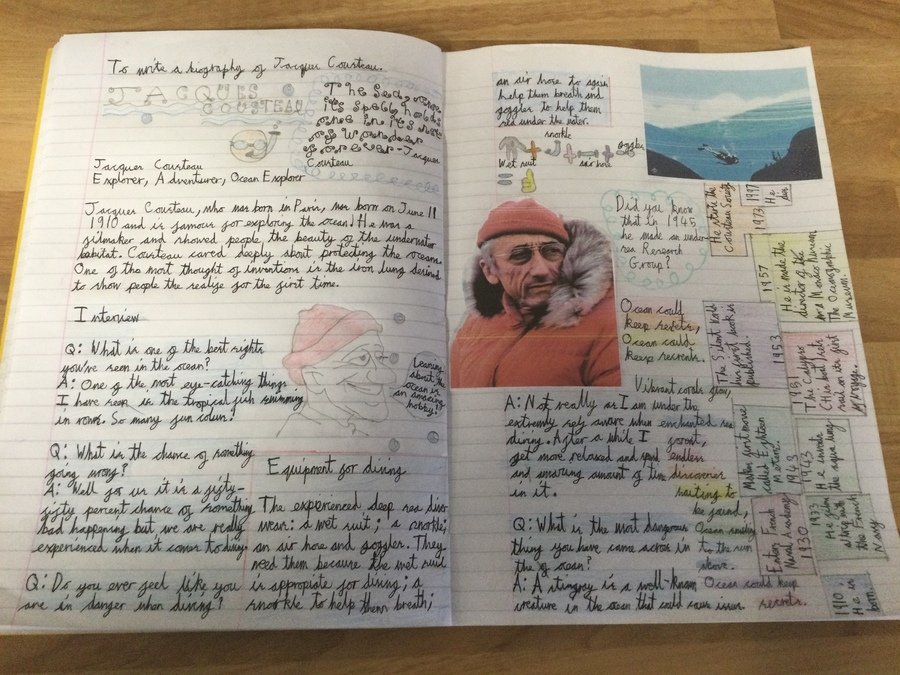 To write a biography of Jacques Cousteau.
JACQUES
COUSTEAU
The Sea, once
it's spell holds
one in it's net
of Wonder
forever - Jacques
Cousteau
Jacques Cousteau
Explorer, Adventurer, Ocean Explorer
Jacques Cousteau, who was born in Paris, was born on June 11
1910 and is famous for exploring the ocean! He was a
filmaker and showed people the beauty of the underwater
habitat. Cousteau cared deeply about protecting the oceans.
One of the most thought of inventions is the iron lung
to show people the realise for the first time.
Interview
Q: What is one of the best sights
you've seen in the ocean?
A: One of the most eye-catching things
I have seen is the tropical fish swimming
in rows. So many fun colours!
Q: What is the chance of something
going wrong?
A: Well for us it is a fifty-
fifty percent chance of something
bad happening but we are really
experienced when it comes to diving.
Q: Do you ever feel like you
are in danger when diving?
Learning
about the
ocean is
an amazing
hobby!
Equipment for diving
The experienced deep sea diver
wear: a wet suit; a snorkle;
an air hose and goggles. They
need them because the wet suit
is appropiate for diving; a
snorkle to help them breath;
an air hose to again
help them breath and
goggles to help them
see under the water.
snorkle
goggles
Wet suit
air hose
Did you know
that in 1945
he made an under
sea Research
Group?
Ocean could
keep secrets,
Ocean could
keep secrets.
Vibrant corals glow,
enchanted sea
forest,
endless
discoveries
waiting to
be found,
Ocean
to the sun
above.
Ocean could keep
secrets.
A: Not really as I am under the
extremely self aware when
diving. After a while I
get more relaxed and spend
and amazing amount of time
in it.
Q: What is the most dangerous
thing you have come across in
the of ocean?
A: A stingray is a well-known
creature in the ocean that could cause issues.
1910
He is
born.
1930
Enters French
Naval Academy
1933
He
the French
Navy
1943
Makes first movie
called Eighteen
metres.
1943
He invents
the aqua lung
1951
The Calypso
(His boat) sets
sail on its first
voyage.
1953
The Silent World
his first book is
published.
1957
He is made the
director of the
Monaco Museum
The Oceonographic
Museum.
1973
He starts the
Cousteau Society
1997
He
dies